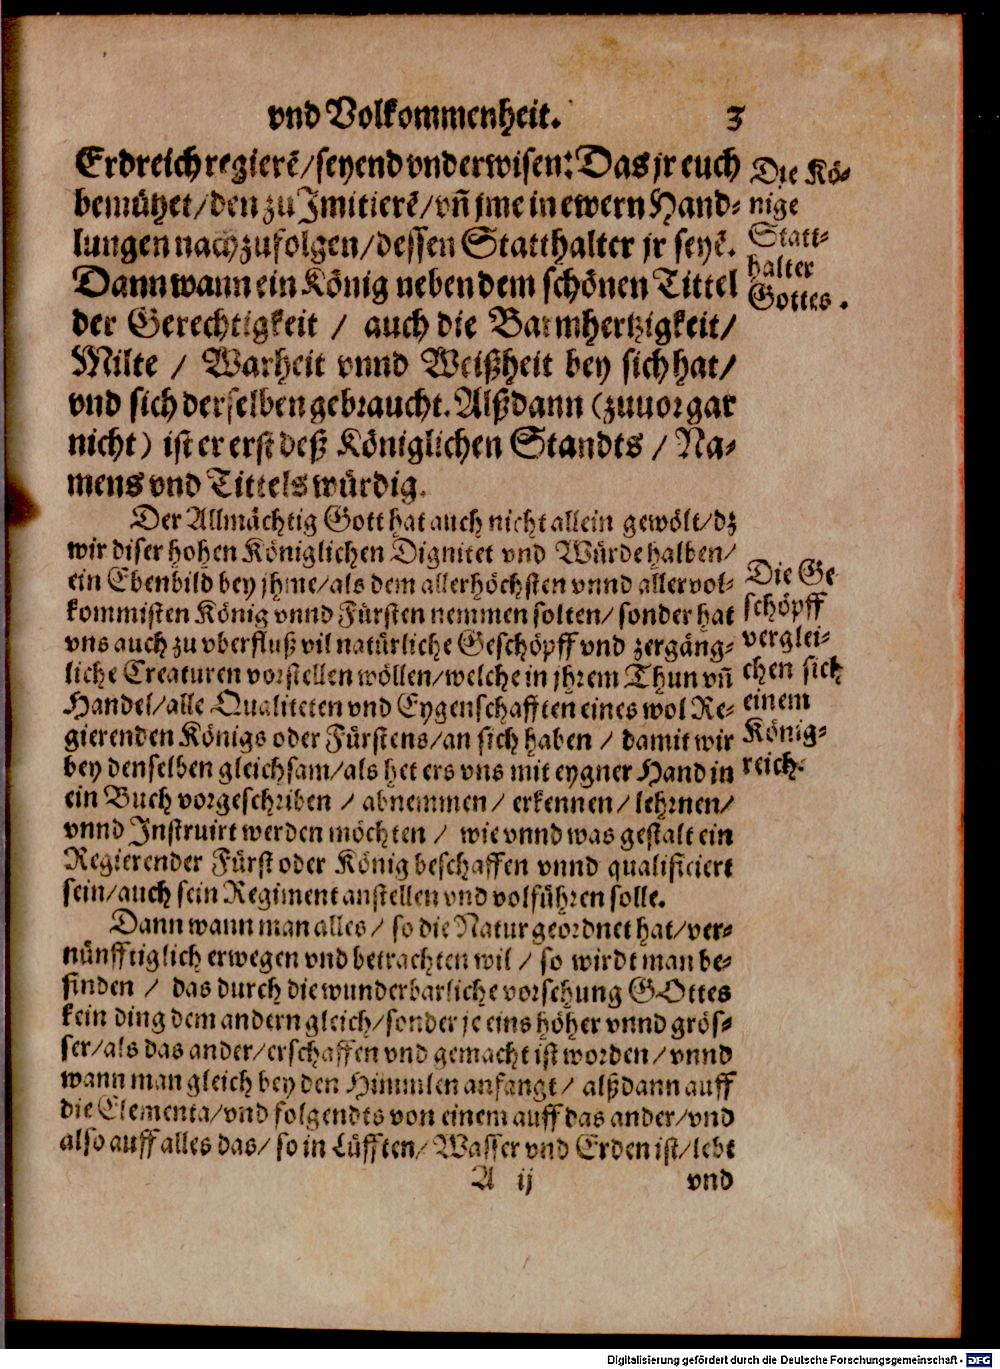 vnd Volkommenheit. 3
Erdreich regierẽ/seyend vnderwisen: Das jr euch
bemühet/den zu Imitierẽ/vñ jme in ewern Hand-
lungen nachzufolgen/dessen Statthalter jr seyẽ.
Dann wann ein König neben dem schönen Tittel
der Gerechtigkeit / auch die Barmhertzigkeit/
Milte / Warheit vnnd Weißheit bey sich hat/
vnd sich derselben gebraucht. Alßdann (zuuor gar
nicht) ist er erst deß Königlichen Standts / Na-
mens vnd Tittels würdig.
Die Kö-
nige
Statt-
halter
Gottes.
Der Allmächtig Gott hat auch nicht allein gewölt/dz
wir diser hohen Königlichen Dignitet vnd Würde halben/
ein Ebenbild bey jhme/als dem allerhöchsten vnnd allervol-
kommisten König vnnd Fürsten nemmen solten/ sonder hat
vns auch zu vberfluß vil natürliche Geschöpff vnd zergäng-
liche Creaturen vorstellen wöllen/welche in jhrem Thun vñ
Handel/alle Qualiteten vnd Eygenschafften eines wol Re-
gierenden Königs oder Fürstens/an sich haben / damit wir
bey denselben gleichsam/als het ers vns mit eygner Hand in
ein Buch vorgeschriben / abnemmen/ erkennen/ lehrnen/
vnnd Instruirt werden möchten / wie vnnd was gestalt ein
Regierender Fürst oder König beschaffen vnnd qualificiert
sein/auch sein Regiment anstellen vnd volführen solle.
Die Ge
schöpff
verglei-
chen sich
einem
König-
reich.
Dann wann man alles/ so die Natur geordnet hat/ver-
nünfftiglich erwegen vnd betrachten wil / so wirdt man be-
finden / das durch die wunderbarliche vorsehung GOttes
kein ding dem andern gleich/sonder je eins höher vnnd grös-
ser/als das ander/erschaffen vnd gemacht ist worden/vnnd
wann man gleich bey den Himmlen anfangt/ alßdann auff
die Elementa/vnd folgendts von einem auff das ander/vnd
also auff alles das/ so in Lüfften/ Wasser vnd Erden ist/lebt
A ij vnd
Digitalisierung gefördert durch die Deutsche Forschungsgemeinschaft - DFG